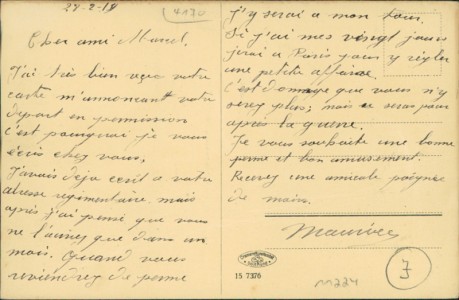 27-2-18
4170
Cher ami Marcel.
J'ai très bien reçu votre
carte m'annonçant votre
départ en permission
c'est pourquoi je vous
écris chez vous,
J'avais deja ecrit a votre
adresse regimentaire mais
après j'ai pensé que vous
ne l'auriez que dans un
mois. Quand vous
reviendrez de perme
j'y serai a mon tour.
Si j'ai mes vingt jours
jerai a Paris pour y régler
une petite affaire.
C'est domage que vous n'y
serez plus; mais ce seras pour
après la guerre.
Je vous souhaite une bonne
perme et bon amusement.
Recevez une amicale poignée
de main.
Maurice
15 7376
M224
7